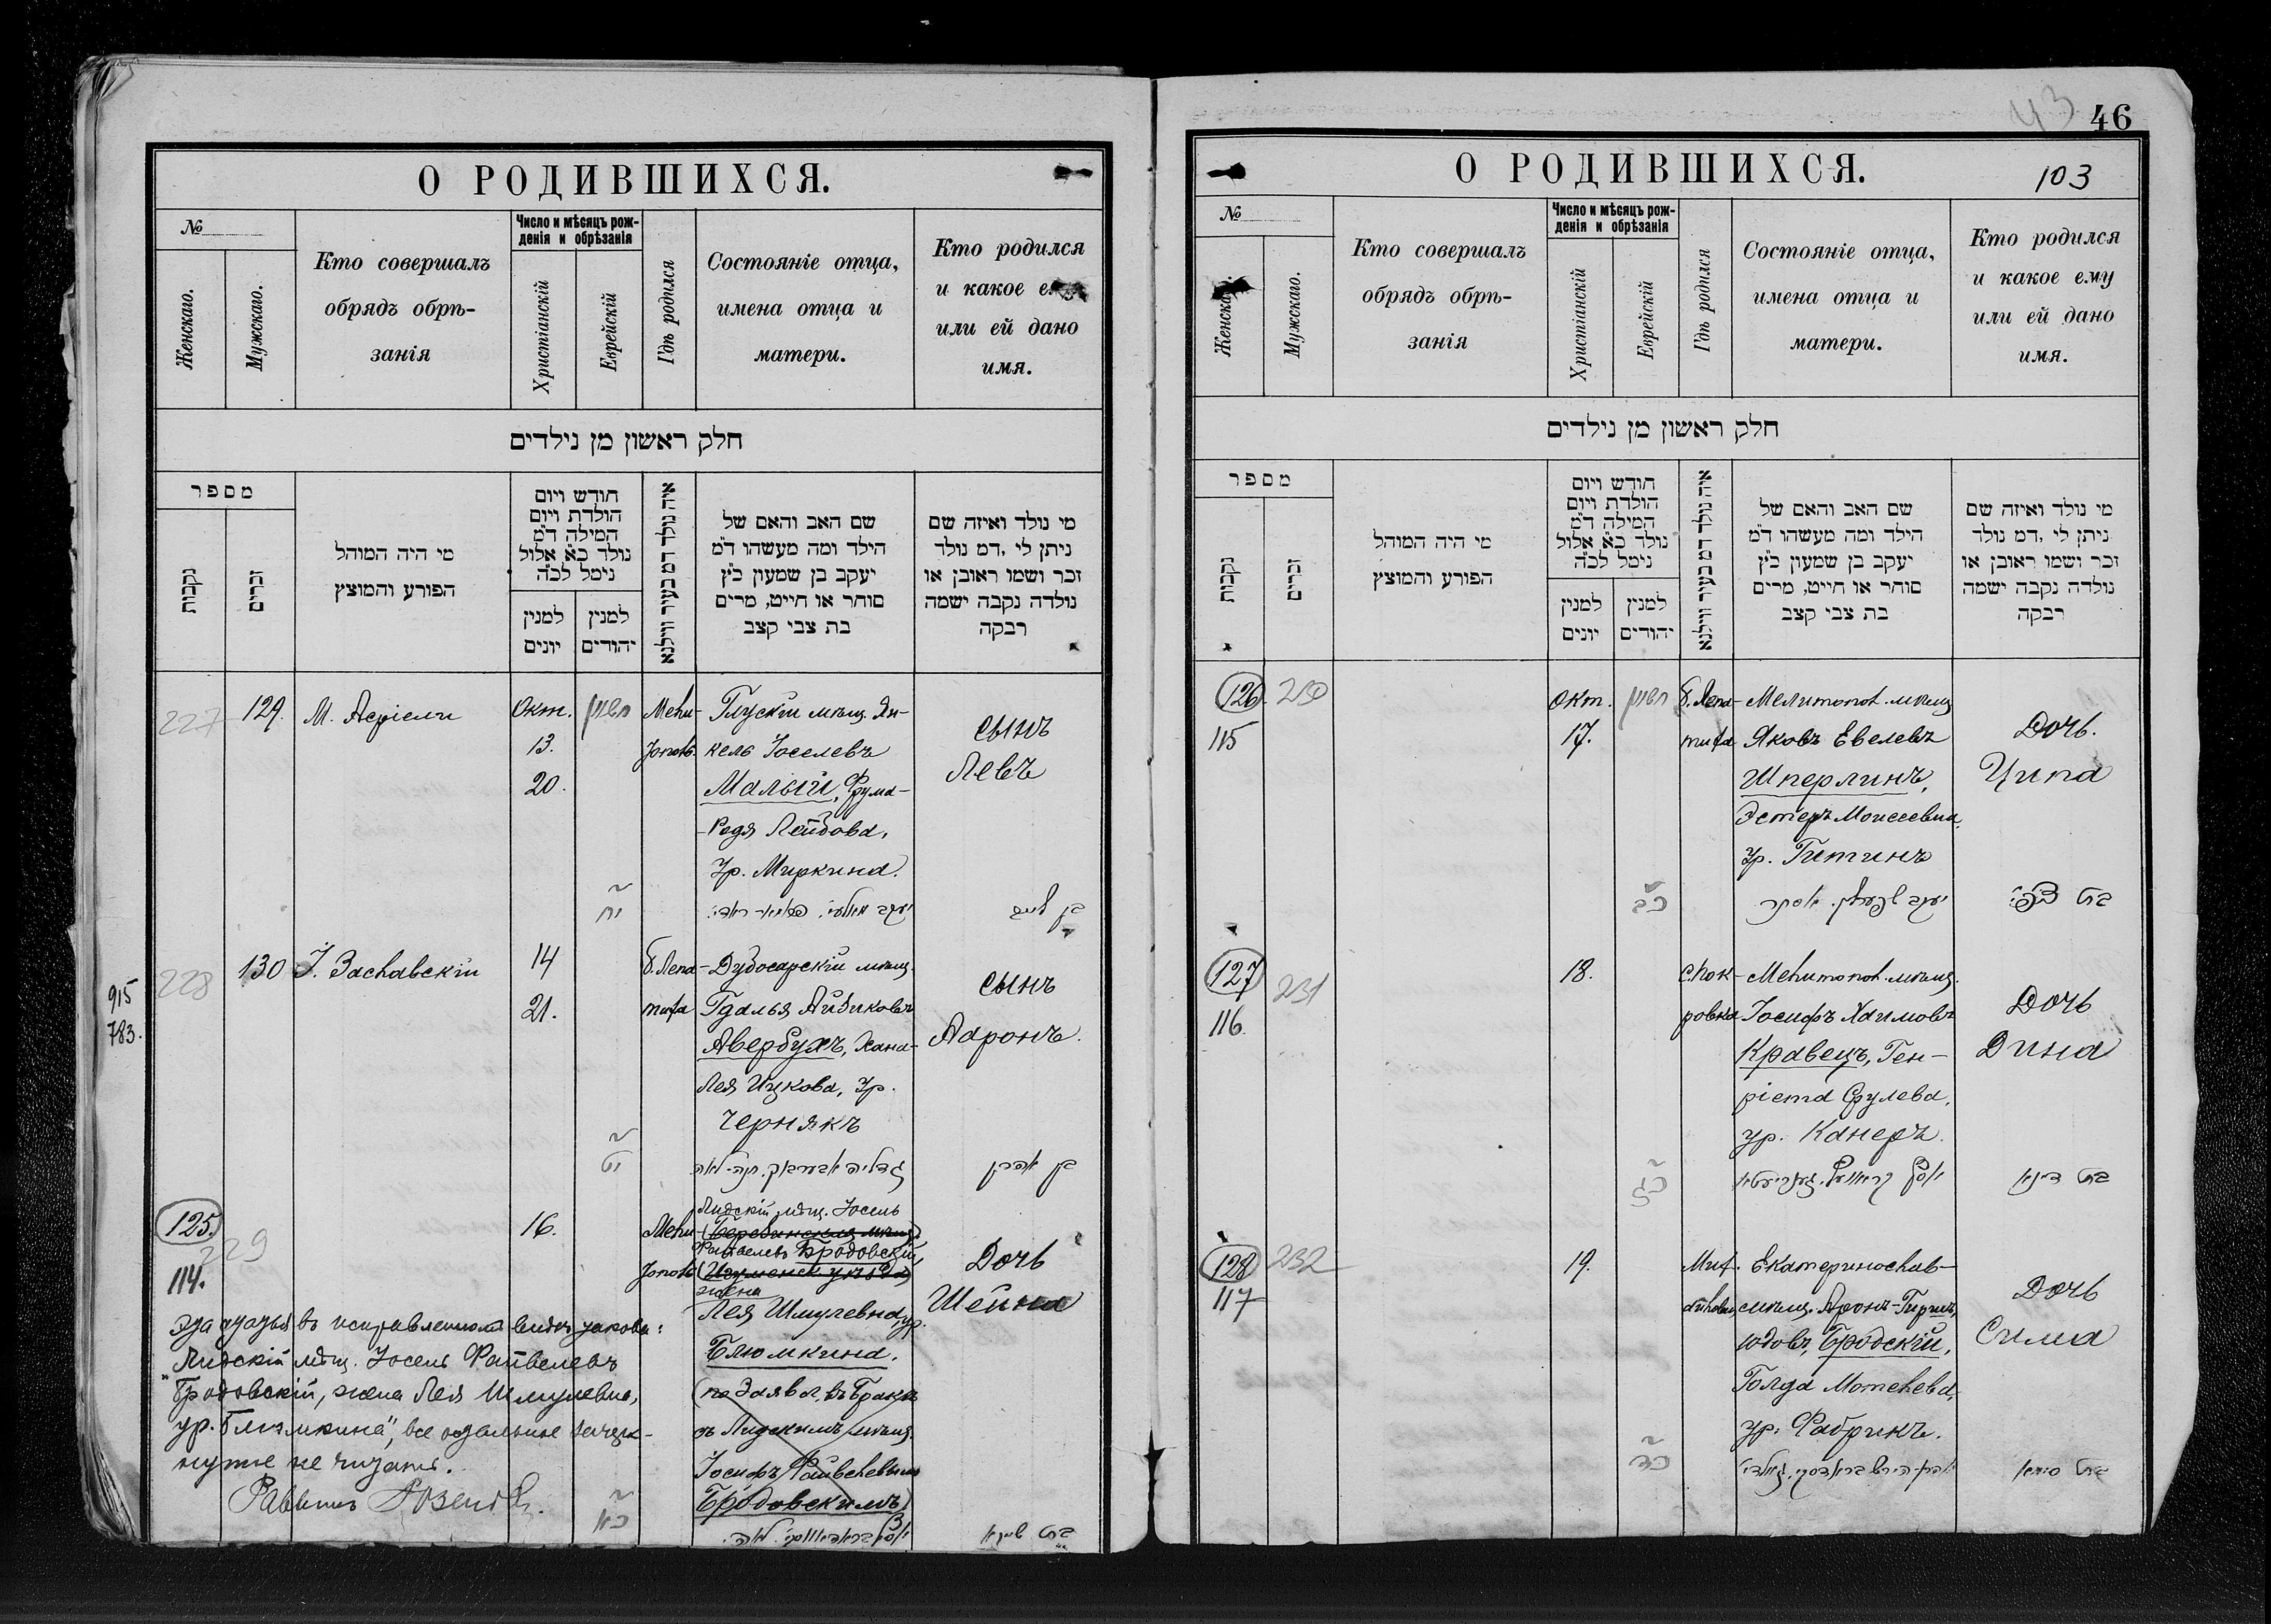 О РОДИВШИХСЯ.
№
Женскаго.
Мужскаго.
Кто совершалъ
обрядъ обрѣ-
занія
Число и мѣсяцъ рож-
денія и обрѣзанія
Христіанскій
Еврейскій
Гдѣ родился
Состояніе отца,
имена отца и
матери.
Кто родился
и какое
или ей дано
имя.
חלק ראשון מן נילדים
מספר
נקבות
זכרים
מי היה המוהל
הפורע והמוצץ
חודש ויום
הולדת ויום
המילה ד"מ
נולד כ"א אלול
נימל לכ"ה
למנין
יונים
למנין
יהודים
איה נולד דמ בעיר ווילנא
שם האב והאם של
הילד ומה מעשהו ד"מ
יעקב בן שמעון כ"ץ
סוחר או חייט, מרים
בת צבי קצב
מי נולד ואיזה שם
ניתן לי ,דמ נולד
זכר ושמו ראובן או
נולדה נקבה ישמה
רבקה
227
129.
М. Асріели
Окт.
13.
20.
חשון
יח
Мели-
тополь.
Глускій мѣщ. Ян-
кель Іоселевъ
Малый, Фрума-
-Родя Лейбова,
ур. Миркина.
сынъ
Левъ
915
783.
228
130
І. Заславскій
14
21.
יט
б. Лепа-
тиха
Дубосарскій мѣщ.
Гдалья Айзиковъ
Авербухъ, Хана-
Лея Ицкова, ур.
Чернякъ
сынъ
Ааронъ.
בן אהרן
125.
229
114.
16.
כא
Мели-
тополь
Лидскій мѣщ. Іосель
Файвелевъ Бродовскій
жена
Лея Шмулевна, ур.
Блюмкина.
(по заявл. въ бракѣ
съ Лидскимъ мѣщ.
Іосифъ Файвелевымъ
Бродовскимъ)
Дочь
Шейна
בת שיינא
въ исправленномъ видѣ такова:
"Лидскій мѣщ. Іосель Файвелевъ
Бродовскій, жена Лея Шмулевна,
ур. Блюмкина", все остальное зачерк-
нутое не читать.
Раввинъ
43
46
О РОДИВШИХСЯ.
103
№
Мужскаго.
Кто совершалъ
обрядъ обрѣ-
занія
Число и мѣсяцъ рож-
денія и обрѣзанія
Христіанскій
Еврейскій
Гдѣ родился
Состояніе отца,
имена отца и
матери.
Кто родился
и какое ему
или ей дано
имя.
חלק ראשון מן נילדים
מספר
נקבות
זכרים
מי היה המוהל
הפורע והמוצץ
חודש ויום
הולדת ויום
המילה ד"מ
נולד כ"א אלול
נימל לכ"ה
למנין
יונים
למנין
יהודים
איה נולד דמ בעיר ווילנא
שם האב והאם של
הילד ומה מעשהו ד"מ
יעקב בן שמעון כ"ץ
סוחר או חייט, מרים
בת צבי קצב
מי נולד ואיזה שם
ניתן לי ,דמ נולד
זכר ושמו ראובן או
נולדה נקבה ישמה
רבקה
126.
230
115
окт.
17.
חשון
כב
б. Лепа-
тиха
Мелитопол. мѣщ
Яковъ Евелевъ
Шперлинъ,
Эстеръ Моисеевна,
ур. Гитинъ
Дочь.
Ципа
127
231
116.
18.
כג
Мелитопол. мѣщ.
Іосифъ Хаимовъ
Кравецъ, Ген-
ріета Срулева,
ур. Канеръ.
Дочь
Дина
בת דינא
128
232
117
19.
כד
Мих.
Екатеринослав-
мѣщ. Аронъ-Гиршъ
Юдовъ, Бродскій,
Голда Мотелева,
ур. Фабрикъ.
Дочь
Сима
בת סימא